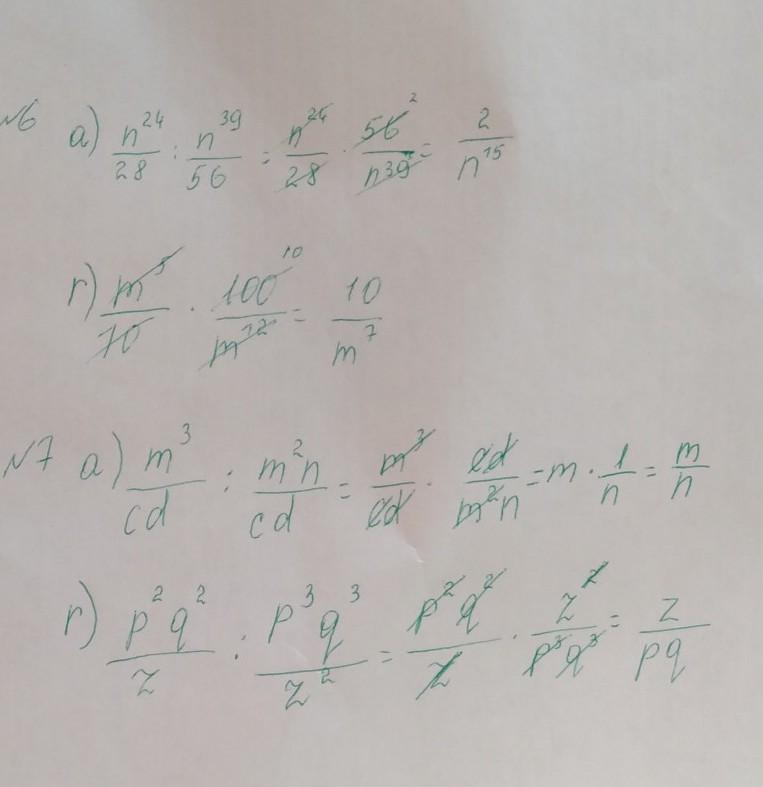 №6 а) n^24/28 : n^39/56 = n^24/28 · 56^2/n^39 = 2/n^15
г) m^5/10 · 100^10/m^12 = 10/m^7
№7 а) m^3/cd : m^2n/cd = m^3/cd · cd/m^2n = m · 1/n = m/n
г) p^2q^2/z : p^3q^3/z^2 = p^2q^2/z · z^2/p^3q^3 = z/pq